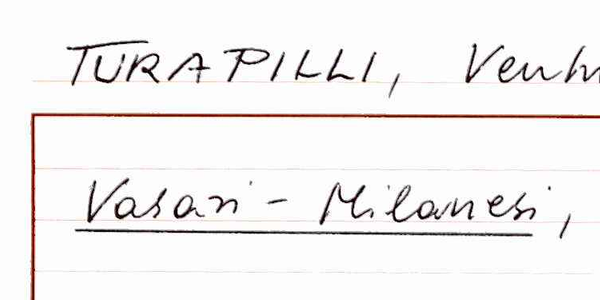 TURAPILLI,
Vasari - Milanesi,